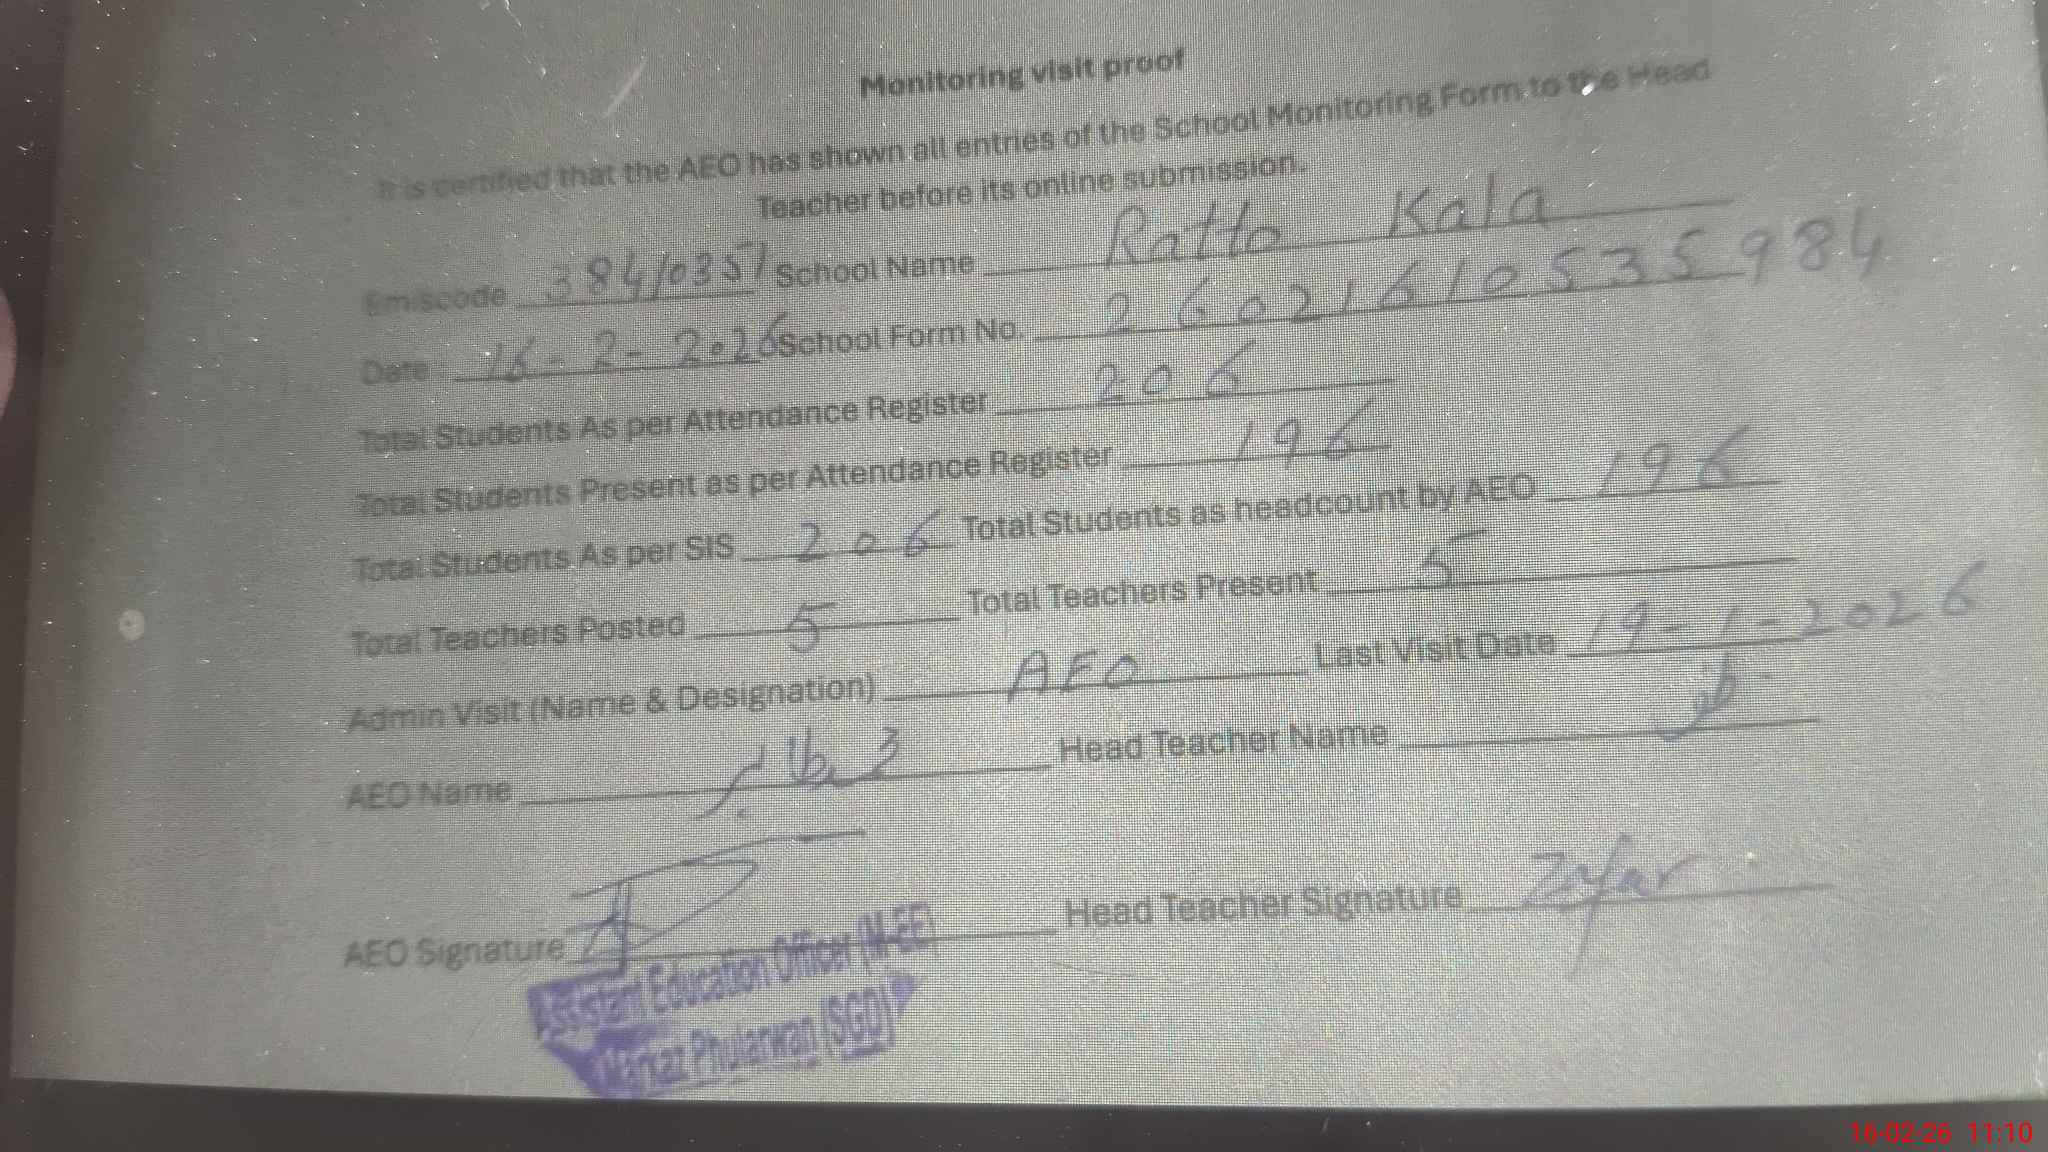 Monitoring visit proof
It is certified that the AEO has shown all entries of the School Monitoring Form to the Head
Teacher before its online submission.
Emiscode 38410351 School Name Ratto Kala
Date 16-2-2026 School Form No. 26021610535984
Total Students As per Attendance Register 206
Total Students Present as per Attendance Register 196
Total Students As per SIS 206 Total Students as headcount by AEO 196
Total Teachers Posted 5 Total Teachers Present 5
Admin Visit (Name & Designation) AEO Last Visit Date 19-1-2026
AEO Name Head Teacher Name
AEO Signature Head Teacher Signature Zafar
Assistant Education Officer (M-EE)
Markaz Phularwan (SGD)
16-02-26 11:10